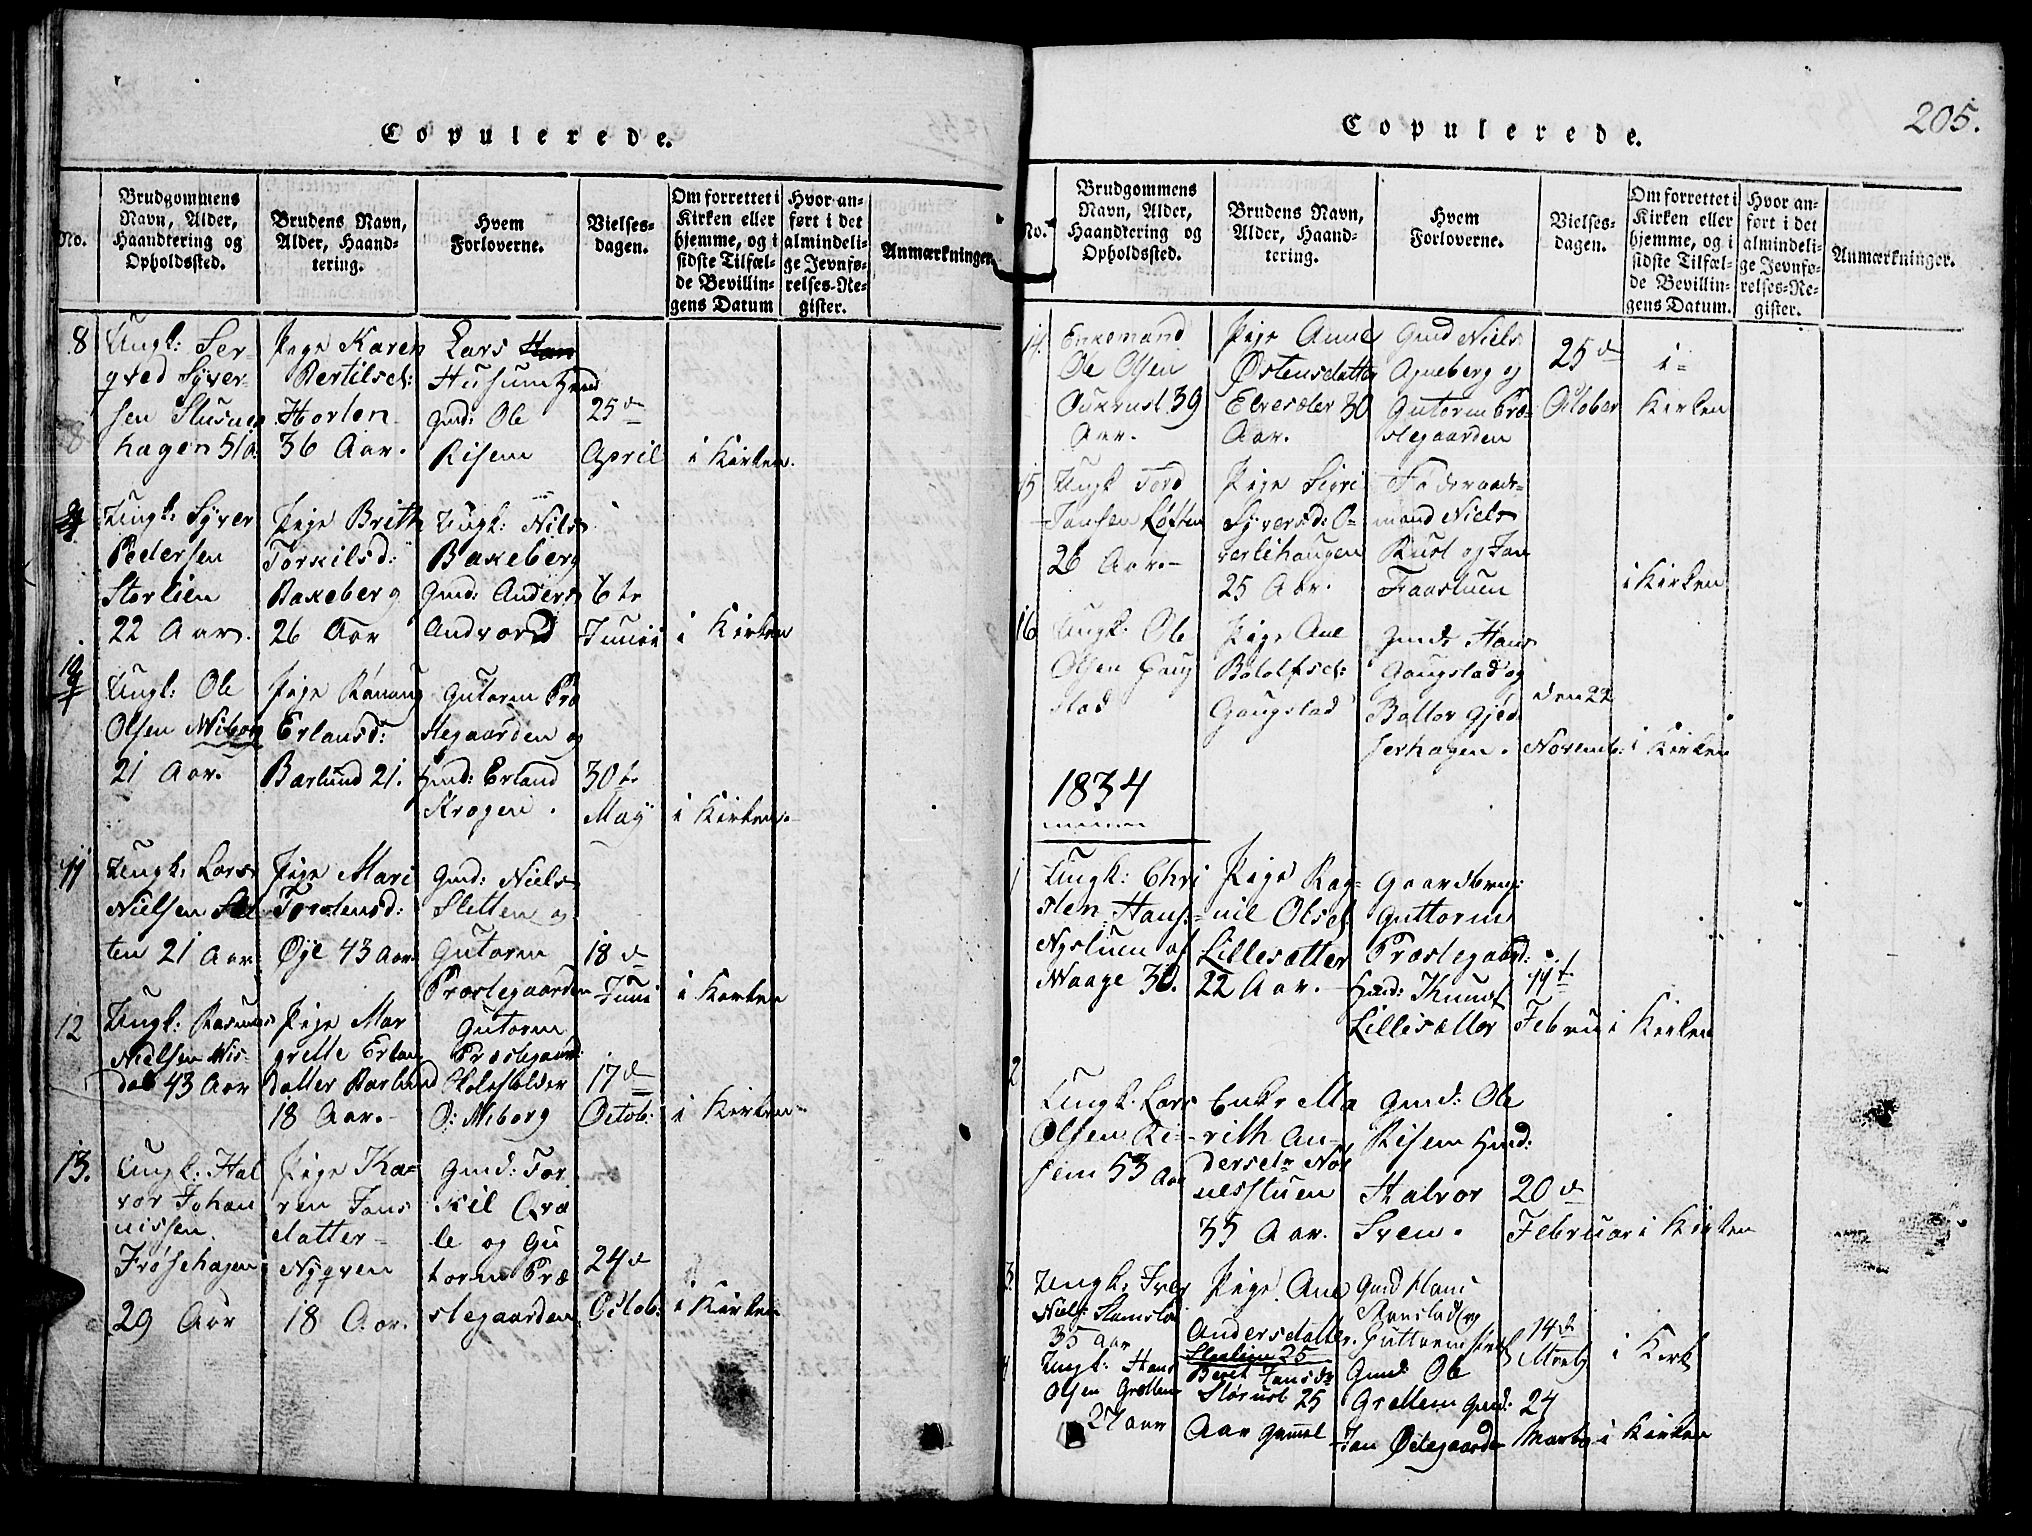 Copulerede.
No.
Brudgommens
Navn, Alder,
Haandtering og
Opholdssted.
Brudens Navn,
Alder, Haand-
tering.
Hvem
Forloverne.
Vielses-
dagen.
Om forrettet i
Kirken eller
hjemme, og i
sidste Tilfæl-
de Bevillin-
gens Datum
Hvor an-
ført i det
almindeli-
ge Jevnfø-
relses-Re-
gister.
Anmærkninger.
8
Ungk: Ser-
qved Syver-
sen
hagen 51 a.
Pige Karen
Bertilsd:
Horlon
36 Aar.
Lars
Husum Hmd
Gmd: Ole
Risem
25 d
April
i Kirken.
Ungk: Syver
Pedersen
Storlien
22 Aar.
Pige Brith
Torkilsd:
Bakeberg
26 Aar
Ungk: Nils
Bakeberg
Gmd: Anders
Andvord
6te
Junii
i Kirken
Ungk: Ole
Olsen Wiborg
21 Aar.
Pige Rønnug
Erlansd:
Barlund 21.
Gutorm Præ
stegaarden og
Hmd: Erland
Krogen.
30te
May
i Kirken.
11
Ungk: Lars
Nielsen Slet
ten 21 Aar
Pige Mari
Torstensd:
Øye 43 Aar.
Gmd: Niels
Sletten og
Gutorm
Præstegaarden
18 d
Juni
i Kirken
12
Ungk: Rasmus
Nielsen Wis-
dal 43 Aar
Pige Mar
grette Erlan
Datter Barlund
18 Aar.
Gutorm
Præstegaard:
Skoleholder
O: Wiborg
17 d
Octob:
i Kirken
13.
Ungk: Hal
vor Johan
nissen
Frøsehagen
29 Aar
Pige Ka-
ren Jans
datter
Nyqven
18 Aar.
Gmd: Tor
kil Qvæ
le og Gu
torm Præ
stegaarden
24 d
Octob:
i Kirken
Copulerede.
205.
No.
Brudgommens
Navn, Alder,
Haandtering og
Opholdssted.
Brudens Navn,
Alder, Haand-
tering.
Hvem
Forloverne.
Vielses-
dagen.
Om forrettet i
Kirken eller
hjemme, og i
sidste Tilfæl-
de Bevillin-
gens Datum.
Hvor an-
ført i det
almindeli-
ge Jevnfø-
relses-Re-
gister.
Anmærkninger.
14.
Enkemand
Ole Olsen
Aukrust 39
Aar.
Pige Anne
Østensdatter
Elvesæter 30
Aar.
Gmd Niels
Agneberg og
Gutorm Præ-
stegaarden
25 d
October
i
Kirken
15
Ungk Tord
Jansen Løften
26 Aar.
Pige Sigri
Syversd: O-
verlihaugen
25 Aar.
Føderaads-
mand Niels
Rust og Jan
Faastuen
i Kirken
16
Ungk: Ole
Olsen Gaug
stad
Pige Ane
Bololfsd:
Gaugstad
Gmd: Hans
Gaugstad og
Bottor Gjed
serhagen.
den 22
Novemb:
i Kirken
1834
1
Ungk: Chri
sten Hans:
Nystuen af
Waage 30.
Pige Rag-
nil Olsd.
Lillesætter
22 Aar.
Gaardbrug:
Guttorm
Præstegaard:
Hmd: Knud
Lillesætter
11t
Febru
i Kirken
2
Ungk. Lars
Olsen Ri-
sem 53 Aar
Enke Ma
rith An-
dersdtr Nør
nesstuen
35 Aar.
Gmd: Ole
Risem Hmd:
Halvor
Sven.
20 d
Februar
i Kirken
3.
Ungk: Iver
Niels:
35 Aar
Pige Ane
Andersdatter
25
Gmd Hans
og
Guttorm
14 d
Martz
i Kirk
4
Ungk: Hans
Olsen Grøttem
27 aar
Berit Jansdr
Størust 25
Aar gammel
Gmd: Ole
Grøttem Gmd:
Jan Ødegaarden
24
Marty
i Kirken